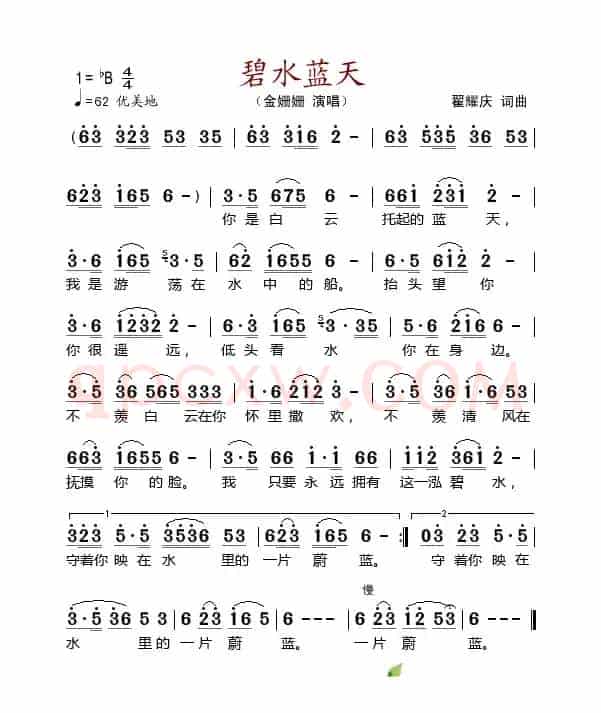 碧水蓝天
1=♭B 4/4
♩=62 优美地
（金姗姗 演唱）
翟耀庆 词曲
(63 323 53 35 | 63 316 2 - | 63 535 36 53
623 165 6 -) | 3·5 675 6 - | 661 231 2 - |
你是白 云 托起的蓝 天，
3·6 165 53·5 | 62 1655 6 - | 3·6 612 2 - |
我是游 荡在 水 中的船。 抬头望 你
3·6 1232 2 - | 6·3 165 53·35 | 5·6 216 6 - |
你很遥 远， 低头看 水 你在身 边。
3·5 36 565 333 | 1·6 212 3 - | 3·5 36 53 533
不 羡白云在你 怀里撒 欢， 不 羡清 风在
663 1655 6 - | 3·5 66 1·1 66 | 112 361 2 - |
抚摸 你的脸。 我 只要永远拥有 这一泓碧 水，
1 2
323 5·5 3536 53 | 623 165 6 - :| 03 23 5·5
守着你映在 水 里的一片蔚 蓝。 守 着你映在
慢
3·5 36 53 53 | 623 165 6 - - - | 6 23 12 53 | 6 - - - ‖
水 里的一片蔚 蓝。 一片蔚 蓝。
qpcxw.COM